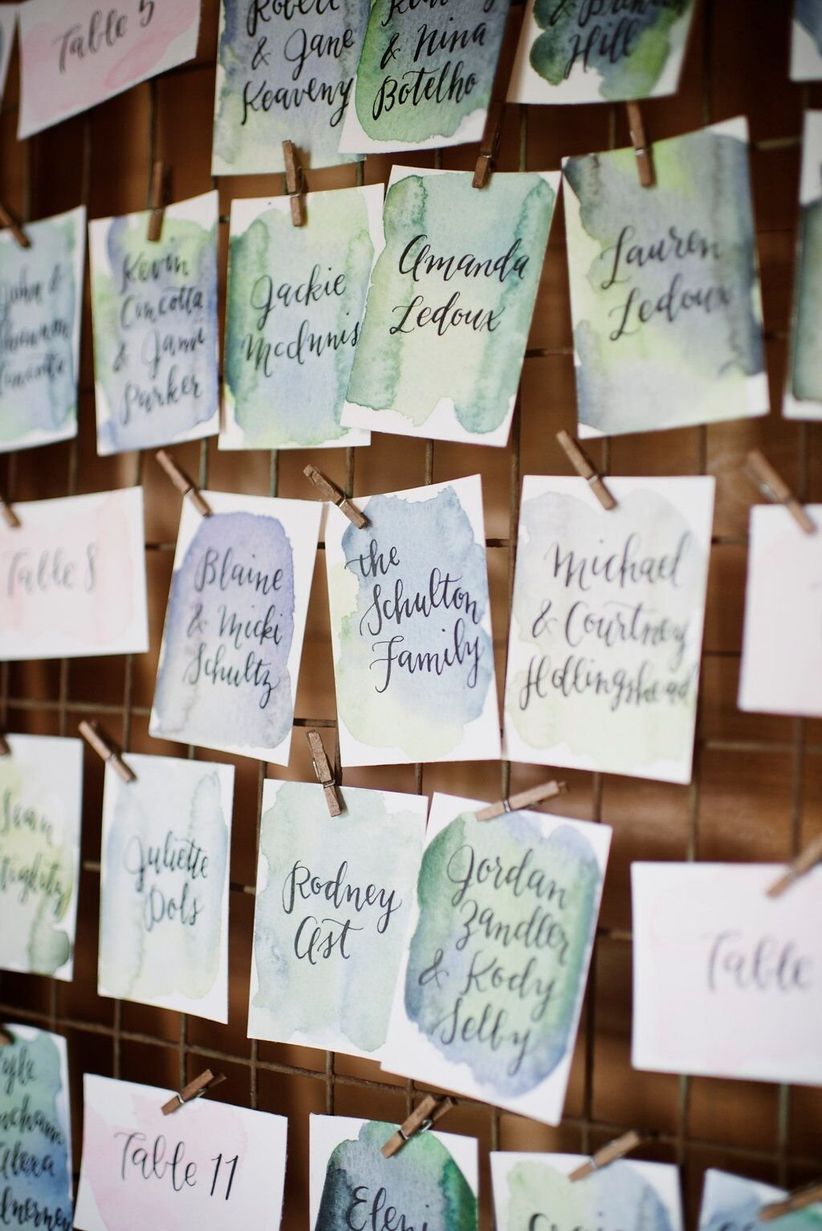 Table 5
Robert
& Jane
Keaveny
& Nina
Botelho
Hill
Kevin
Cincotta
& Jami
Parker
Jackie
McInnis
Amanda
Ledoux
Lauren
Ledoux
Table 8
Blaine
& Micki
Schultz
the
Schulton
Family
Michael
& Courtney
Hollingshead
Juliette
Dols
Rodney
Ast
Jordan
Zandler
& Kody
Selby
Table
Table 11
Eleni